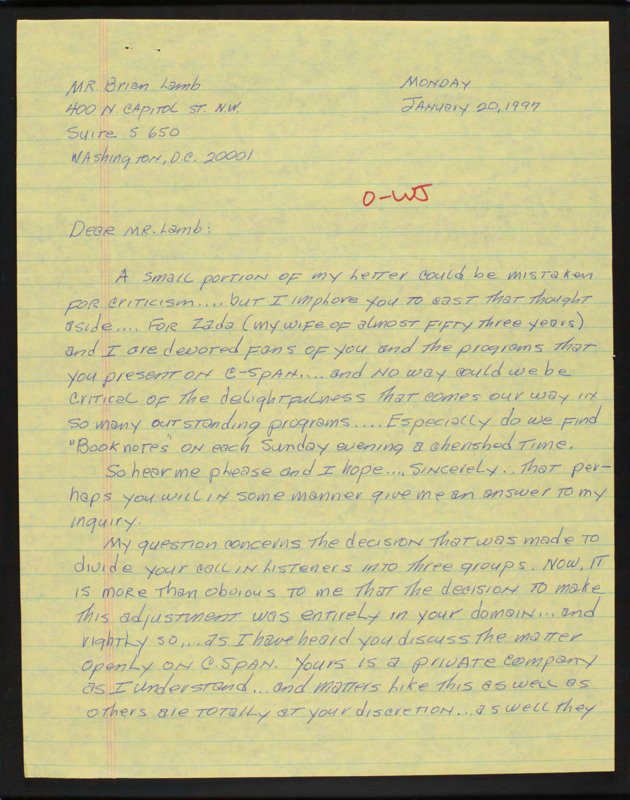 MR. Brian Lamb
MONDAY
400 N. CAPITOL ST. N.W.
JANUARY 20, 1997
Suite S 650
WAShington, D.C. 20001
O-WJ
Dear MR. Lamb:
A small portion of my letter could be mistaken
for criticism.... but I implore you to cast that thought
aside.... For Zada (my wife of almost fifty three years)
and I are devoted fans of you and the programs that
you present on C-SPAN.... and no way could we be
critical of the delightfulness that comes our way in
so many outstanding programs.... Especially do we find
"Booknotes" on each Sunday evening a cherished time.
So hear me please and I hope.... sincerely.. that per-
haps you will in some manner give me an answer to my
inquiry.
My question concerns the decision that was made to
divide your call in listeners into three groups. Now, it
is more than obvious to me that the decision to make
this adjustment was entirely in your domain... and
rightly so... as I have heard you discuss the matter
openly on C.SPAN. Yours is a private company
as I understand... and matters like this as well as
others are totally at your discretion... as well they